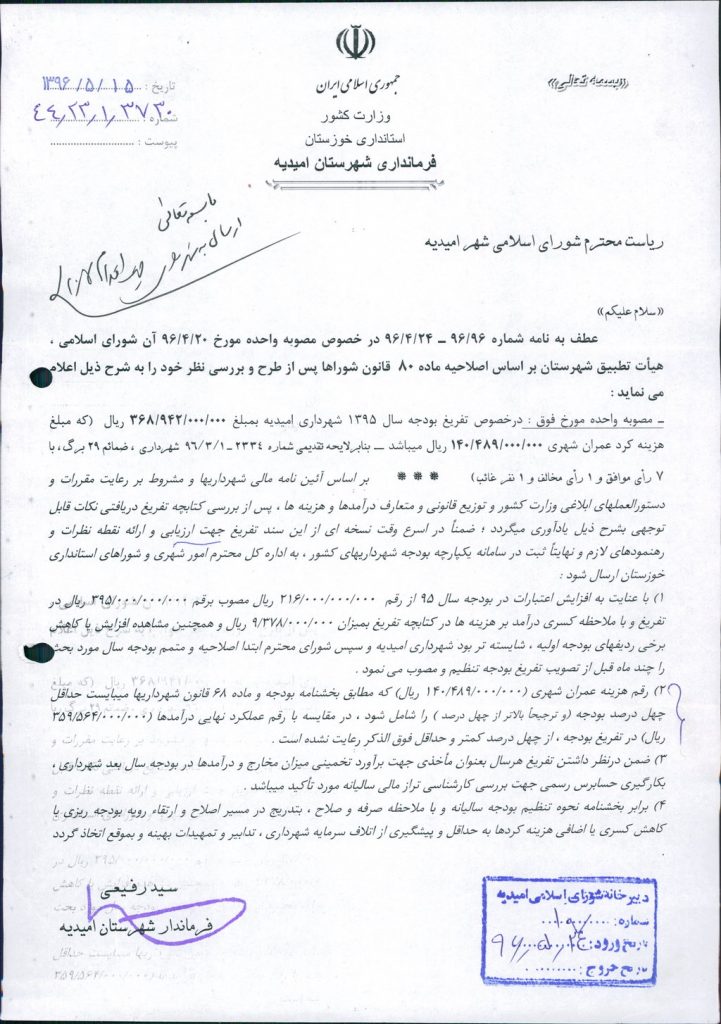 «بسمه تعالی»
جمهوری اسلامی ایران
وزارت کشور
استانداری خوزستان
فرمانداری شهرستان امیدیه
تاریخ : ۱۳۹۶/۵/۱۵
شماره : ۴۴,۲۳,۱,۳۷۳۰
پیوست :
باسمه تعالی
ریاست محترم شورای اسلامی شهر امیدیه
«سلام علیکم»
عطف به نامه شماره ۹۶/۹۶ – ۹۶/۴/۲۴ در خصوص مصوبه واحده مورخ ۹۶/۴/۲۰ آن شورای اسلامی ،
هیأت تطبیق شهرستان بر اساس اصلاحیه ماده ۸۰ قانون شوراها پس از طرح و بررسی نظر خود را به شرح ذیل اعلام
می نماید :
ـ مصوبه واحده مورخ فوق : درخصوص تفریغ بودجه سال ۱۳۹۵ شهرداری امیدیه بمبلغ ۳۶۸/۹۴۲/۰۰۰/۰۰۰ ریال (که مبلغ
هزینه کرد عمران شهری ۱۴۰/۴۸۹/۰۰۰/۰۰۰ ریال میباشد ـ بنابرلایحه تقدیمی شماره ۲۳۳۴–۹۶/۳/۱ شهرداری ، ضمائم ۲۹ برگ ، با
۷ رأی موافق و ۱ رأی مخالف و ۱ نفر غائب) *** بر اساس آئین نامه مالی شهرداریها و مشروط بر رعایت مقررات و
دستورالعملهای ابلاغی وزارت کشور و توزیع قانونی و متعارف درآمدها و هزینه ها ، پس از بررسی کتابچه تفریغ دریافتی نکات قابل
توجهی بشرح ذیل یادآوری میگردد ؛ ضمناً در اسرع وقت نسخه ای از این سند تفریغ جهت ارزیابی و ارائه نقطه نظرات و
رهنمودهای لازم و نهایتاً ثبت در سامانه یکپارچه بودجه شهرداریهای کشور ، به اداره کل محترم امور شهری و شوراهای استانداری
خوزستان ارسال شود :
۱) با عنایت به افزایش اعتبارات در بودجه سال ۹۵ از رقم ۲۱۶/۰۰۰/۰۰۰/۰۰۰ ریال مصوب برقم ۳۹۵/۰۰۰/۰۰۰/۰۰۰ ریال در
تفریغ و با ملاحظه کسری درآمد بر هزینه ها در کتابچه تفریغ بمیزان ۹/۳۷۸/۰۰۰/۰۰۰ ریال و همچنین مشاهده افزایش یا کاهش
برخی ردیفهای بودجه اولیه ، شایسته تر بود شهرداری امیدیه و سپس شورای محترم ابتدا اصلاحیه و متمم بودجه سال مورد بحث
را چند ماه قبل از تصویب تفریغ بودجه تنظیم و مصوب می نمود .
۲) رقم هزینه عمران شهری (۱۴۰/۴۸۹/۰۰۰/۰۰۰ ریال) که مطابق بخشنامه بودجه و ماده ۶۸ قانون شهرداریها میبایست حداقل
چهل درصد بودجه (و ترجیحاً بالاتر از چهل درصد ) را شامل شود ، در مقایسه با رقم عملکرد نهایی درآمدها (۳۵۹/۵۶۴/۰۰۰/۰۰۰
ریال) در تفریغ بودجه ، از چهل درصد کمتر و حداقل فوق الذکر رعایت نشده است .
۳) ضمن درنظر داشتن تفریغ هرسال بعنوان مأخذی جهت برآورد تخمینی میزان مخارج و درآمدها در بودجه سال بعد شهرداری ،
بکارگیری حسابرس رسمی جهت بررسی کارشناسی تراز مالی سالیانه مورد تأکید میباشد .
۴) برابر بخشنامه نحوه تنظیم بودجه سالیانه و با ملاحظه صرفه و صلاح ، بتدریج در مسیر اصلاح و ارتقاء رویه بودجه ریزی با
کاهش کسری یا اضافی هزینه کردها به حداقل و پیشگیری از اتلاف سرمایه شهرداری ، تدابیر و تمهیدات بهینه و بموقع اتخاذ گردد
سید رفیعی
فرماندار شهرستان امیدیه
دبیرخانه شورای اسلامی امیدیه
شماره:
تاریخ ورود:
تاریخ خروج: